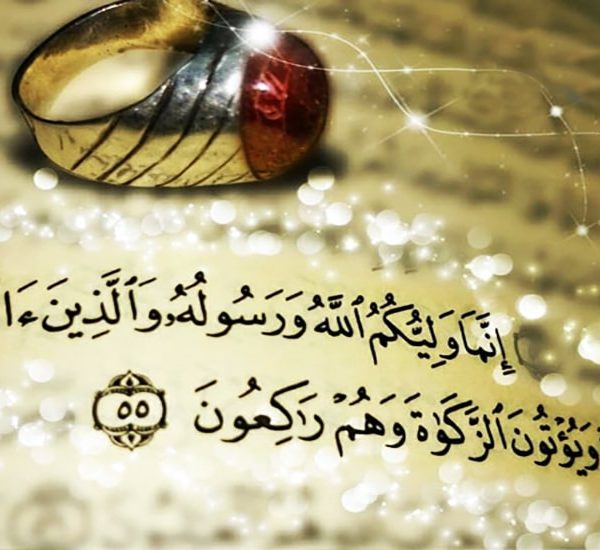 إِنَّمَا وَلِيُّكُمُ ٱللَّهُ وَرَسُولُهُۥ وَٱلَّذِينَ ءَا
وَيُؤْتُونَ ٱلزَّكَوٰةَ وَهُمْ رَٰكِعُونَ ٥٥